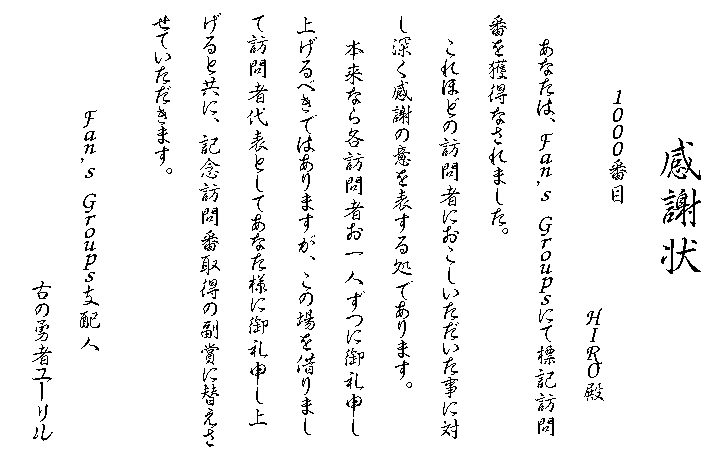 感謝状
1000番目
HIRO殿
あなたは、Fan's Groupsにて標記訪問
番を獲得なされました。
これほどの訪問者におこしいただいた事に対
し深く感謝の意を表する処であります。
本来なら各訪問者お一人ずつに御礼申し
上げるべきではありますが、この場を借りまし
て訪問者代表としてあなた様に御礼申し上
げると共に、記念訪問番取得の副賞に替えさ
せていただきます。
Fan's Groups支配人
古の勇者ユーリル